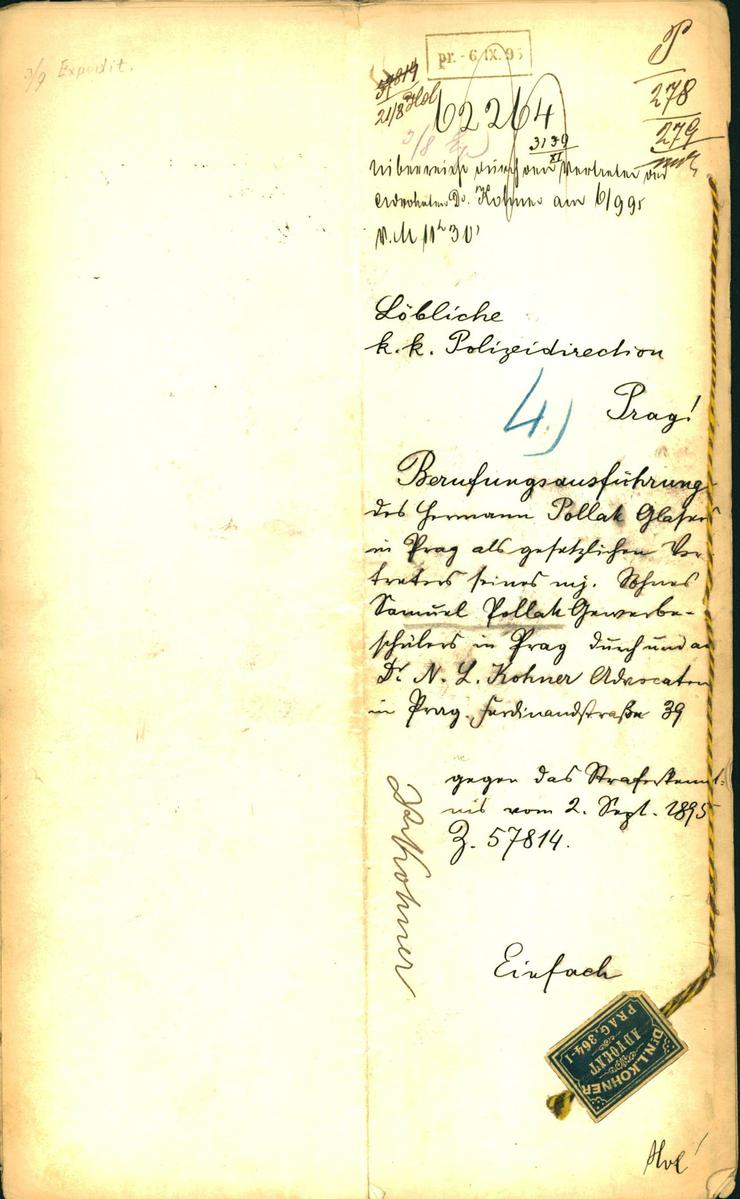 3/9 Expedit.
pr. - 6. IX. 95
57814
21/8 Hol
62264
3139
XI
3/8
P
278
279
Überreicht durch den Vertreter des
Advokaten Dr. Kohner am 6/9 95
V.M 11h 30'
Löbliche
k. k. Polizeidirection
Prag!
4.)
Berufungsausführung
des Hermann Pollak Glasers
in Prag als gesetzlichen Ver-
treters seines mj. Sohnes
Samuel Pollak Gewerbe-
schülers in Prag durch und an
Dr. N. L. Kohner Advocaten
in Prag, Ferdinandstraße 39
gegen das Straferkennt-
nis vom 2. Sept. 1895
Z. 57814.
DrKohner
Einfach
Dr. N. L. KOHNER
ADVOCAT
PRAG, 364-I
Hol